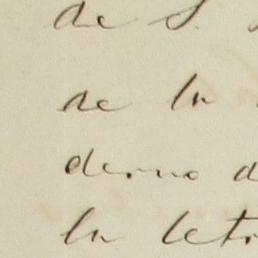 de S.
de la
derno d
la letr